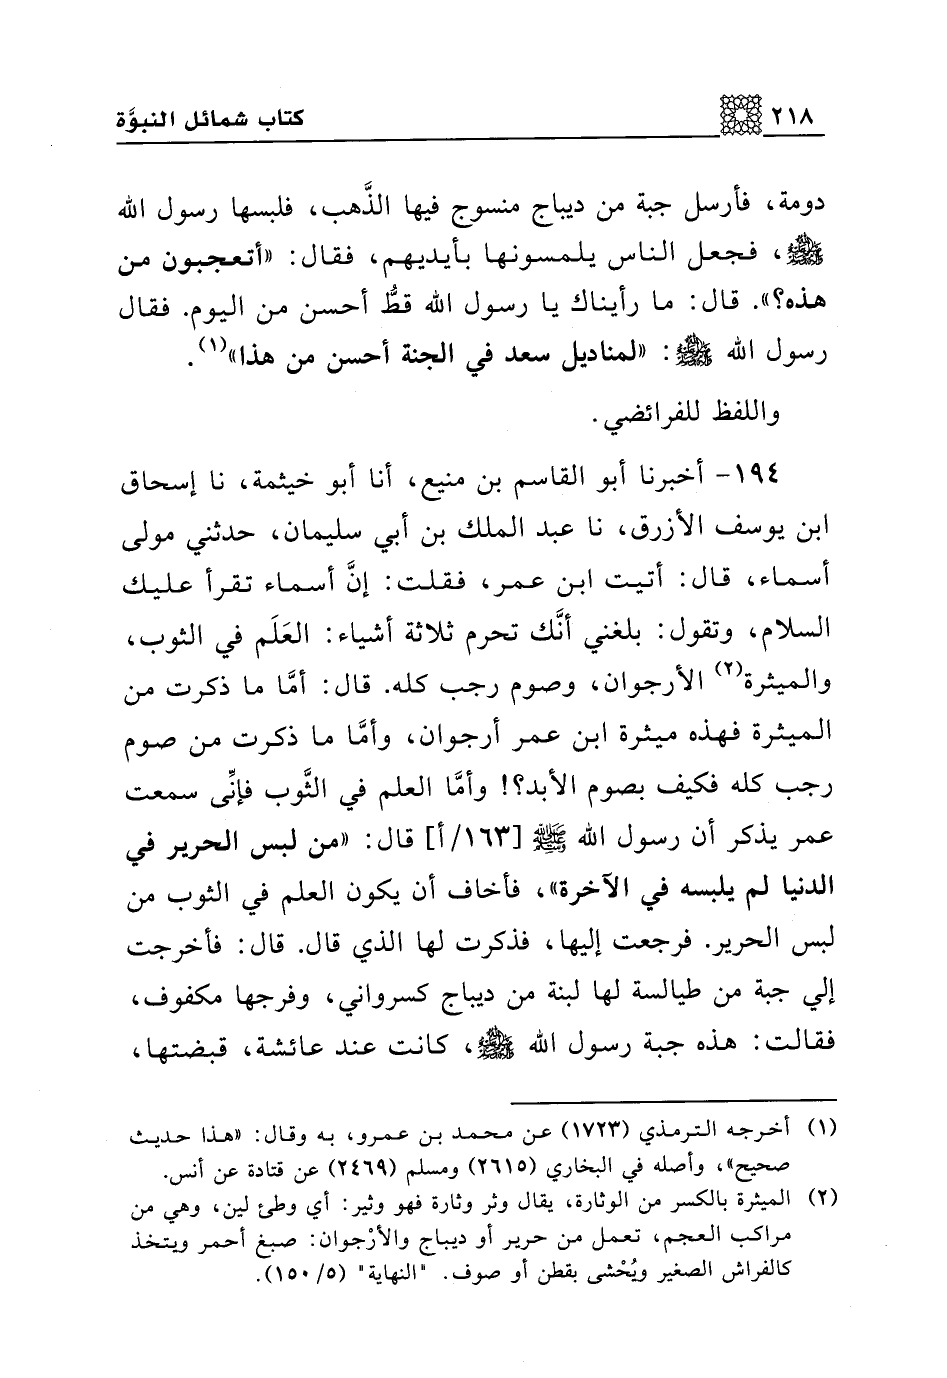 ٢١٨ كتاب شمائل النبوَّة
دومة، فأرسل جبة من ديباج منسوج فيها الذَّهب، فلبسها رسول الله
ﷺ، فجعل الناس يلمسونها بأيديهم، فقال: «أتعجبون من
هذه؟». قال: ما رأيناك يا رسول الله قطُّ أحسن من اليوم. فقال
رسول الله ﷺ: «لمناديل سعد في الجنة أحسن من هذا»(١).
واللفظ للفرائضي.
١٩٤- أخبرنا أبو القاسم بن منيع، أنا أبو خيثمة، نا إسحاق
ابن يوسف الأزرق، نا عبد الملك بن أبي سليمان، حدثني مولى
أسماء، قال: أتيت ابن عمر، فقلت: إنَّ أسماء تقرأ عليك
السلام، وتقول: بلغني أنَّك تحرم ثلاثة أشياء: العَلَم في الثوب،
والميثرة(٢) الأرجوان، وصوم رجب كله. قال: أمَّا ما ذكرت من
الميثرة فهذه ميثرة ابن عمر أرجوان، وأمَّا ما ذكرت من صوم
رجب كله فكيف بصوم الأبد؟! وأمَّا العلم في الثَّوب فإنِّى سمعت
عمر يذكر أن رسول الله ﷺ [١٦٣/أ] قال: «من لبس الحرير في
الدنيا لم يلبسه في الآخرة»، فأخاف أن يكون العلم في الثوب من
لبس الحرير. فرجعت إليها، فذكرت لها الذي قال. قال: فأخرجت
إلي جبة من طيالسة لها لبنة من ديباج كسرواني، وفرجها مكفوف،
فقالت: هذه جبة رسول الله ﷺ، كانت عند عائشة، قبضتها،
(١) أخرجه الترمذي (١٧٢٣) عن محمد بن عمرو، به وقال: «هذا حديث
صحيح»، وأصله في البخاري (٢٦١٥) ومسلم (٢٤٦٩) عن قتادة عن أنس.
(٢) الميثرة بالكسر من الوثارة، يقال وثر وثارة فهو وثير: أي وطئ لين، وهي من
مراكب العجم، تعمل من حرير أو ديباج والأرْجوان: صبغ أحمر ويتخذ
كالفراش الصغير ويُحْشى بقطن أو صوف. "النهاية" (٥/ ١٥٠).